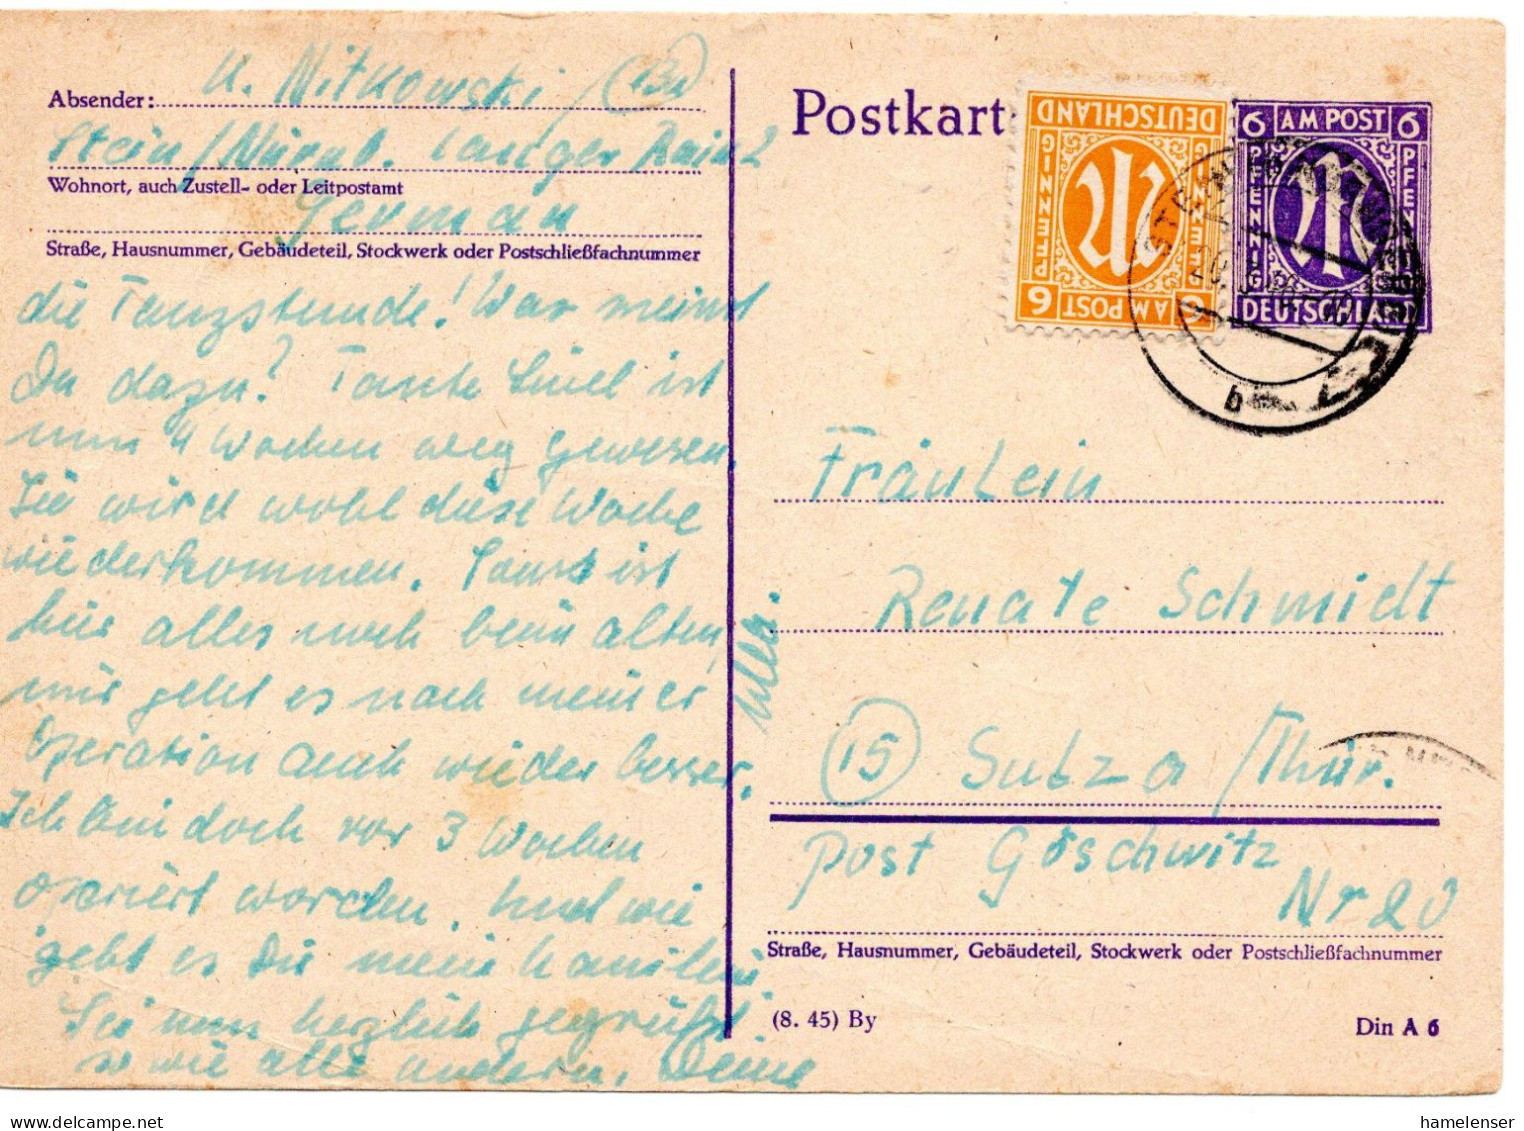 U. Mitkowski
Absender:
Stein/Nürnb. langer Rain 2
Wohnort, auch Zustell- oder Leitpostamt
German
Straße, Hausnummer, Gebäudeteil, Stockwerk oder Postschließfachnummer
die Tanzstunde! Was meinst
Du dazu? Tante Liesl ist
nun 4 Wochen weg gewesen.
Sie wird wohl diese Woche
wiederkommen. Sonst ist
hier alles noch beim alten,
mir geht es nach meiner
Operation auch wieder besser.
Ich bin doch vor 3 Wochen
operiert worden. Und wie
geht es Dir mein
Sei nun herzlich gegrüßt
sowie alle andern. Deine
Postkart
DEUTSCHLAND
PFENNIG
PFENNIG
6 AM POST 6
6 AM POST 6
PFENNIG
PFENNIG
DEUTSCHLAND
b
Fräulein
Renate Schmidt
(15) Sulza/Thür.
Post Göschwitz
Nr 20
Straße, Hausnummer, Gebäudeteil, Stockwerk oder Postschließfachnummer
(8. 45) By
Din A 6
hamelenser